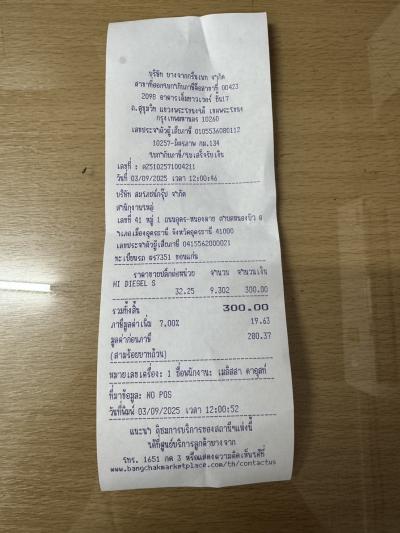 บริษัท บางจากกรีนเนท จำกัด
สาขาที่ออกใบกำกับภาษีคือสาขาที่ 00423
2098 อาคารเอ็มทาวเวอร์ ชั้น17
ถ.สุขุมวิท แขวงพระโขนงใต้ เขตพระโขนง
กรุงเทพมหานคร 10260
เลขประจำตัวผู้เสียภาษี 0105536080112
10257-มิตรภาพ กม.134
ใบกำกับภาษี/ใบเสร็จรับเงิน
เลขที่ : 025102571004211
วันที่ 03/09/2025 เวลา 12:00:46
บริษัท สมรถยนต์กรุ๊ป จำกัด
สำนักงานใหญ่
เลขที่ 41 หมู่ 1 ถนนอุดร-หนองคาย ตำบลหนองบัว อ
ำเภอเมืองอุดรธานี จังหวัดอุดรธานี 41000
เลขประจำตัวผู้เสียภาษี 0415562000021
ทะเบียนรถ ขอนแก่น
ราคาขายปลีกต่อหน่วย จำนวน จำนวนเงิน
HI DIESEL S
32.25 9.302 300.00
รวมทั้งสิ้น 300.00
ภาษีมูลค่าเพิ่ม 7.00% 19.63
มูลค่าก่อนภาษี 280.37
(สามร้อยบาทถ้วน)
หมายเลขเครื่อง: 1 ชื่อพนักงาน: เมลิสสา
ที่มาข้อมูล: NO POS
วันที่พิมพ์ 03/09/2025 เวลา 12:00:52
แนะนำ ติชมการบริการของสถานีฯแห่งนี้
ได้ที่ศูนย์บริการลูกค้าบางจาก
โทร. 1651 กด 3 หรือแสดงความคิดเห็นได้ที่
www.bangchakmarketplace.com/th/contactus